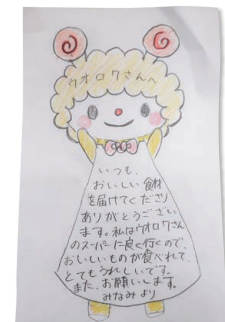 ウオロクさんへ
いつも、
おいしい食材
を届けてくださり
ありがとうござい
ます。私はウオロクさん
のスーパーに良く行くので、
おいしいものが食べれて、
とてもうれしいです。
また、お願いします。
みなみより